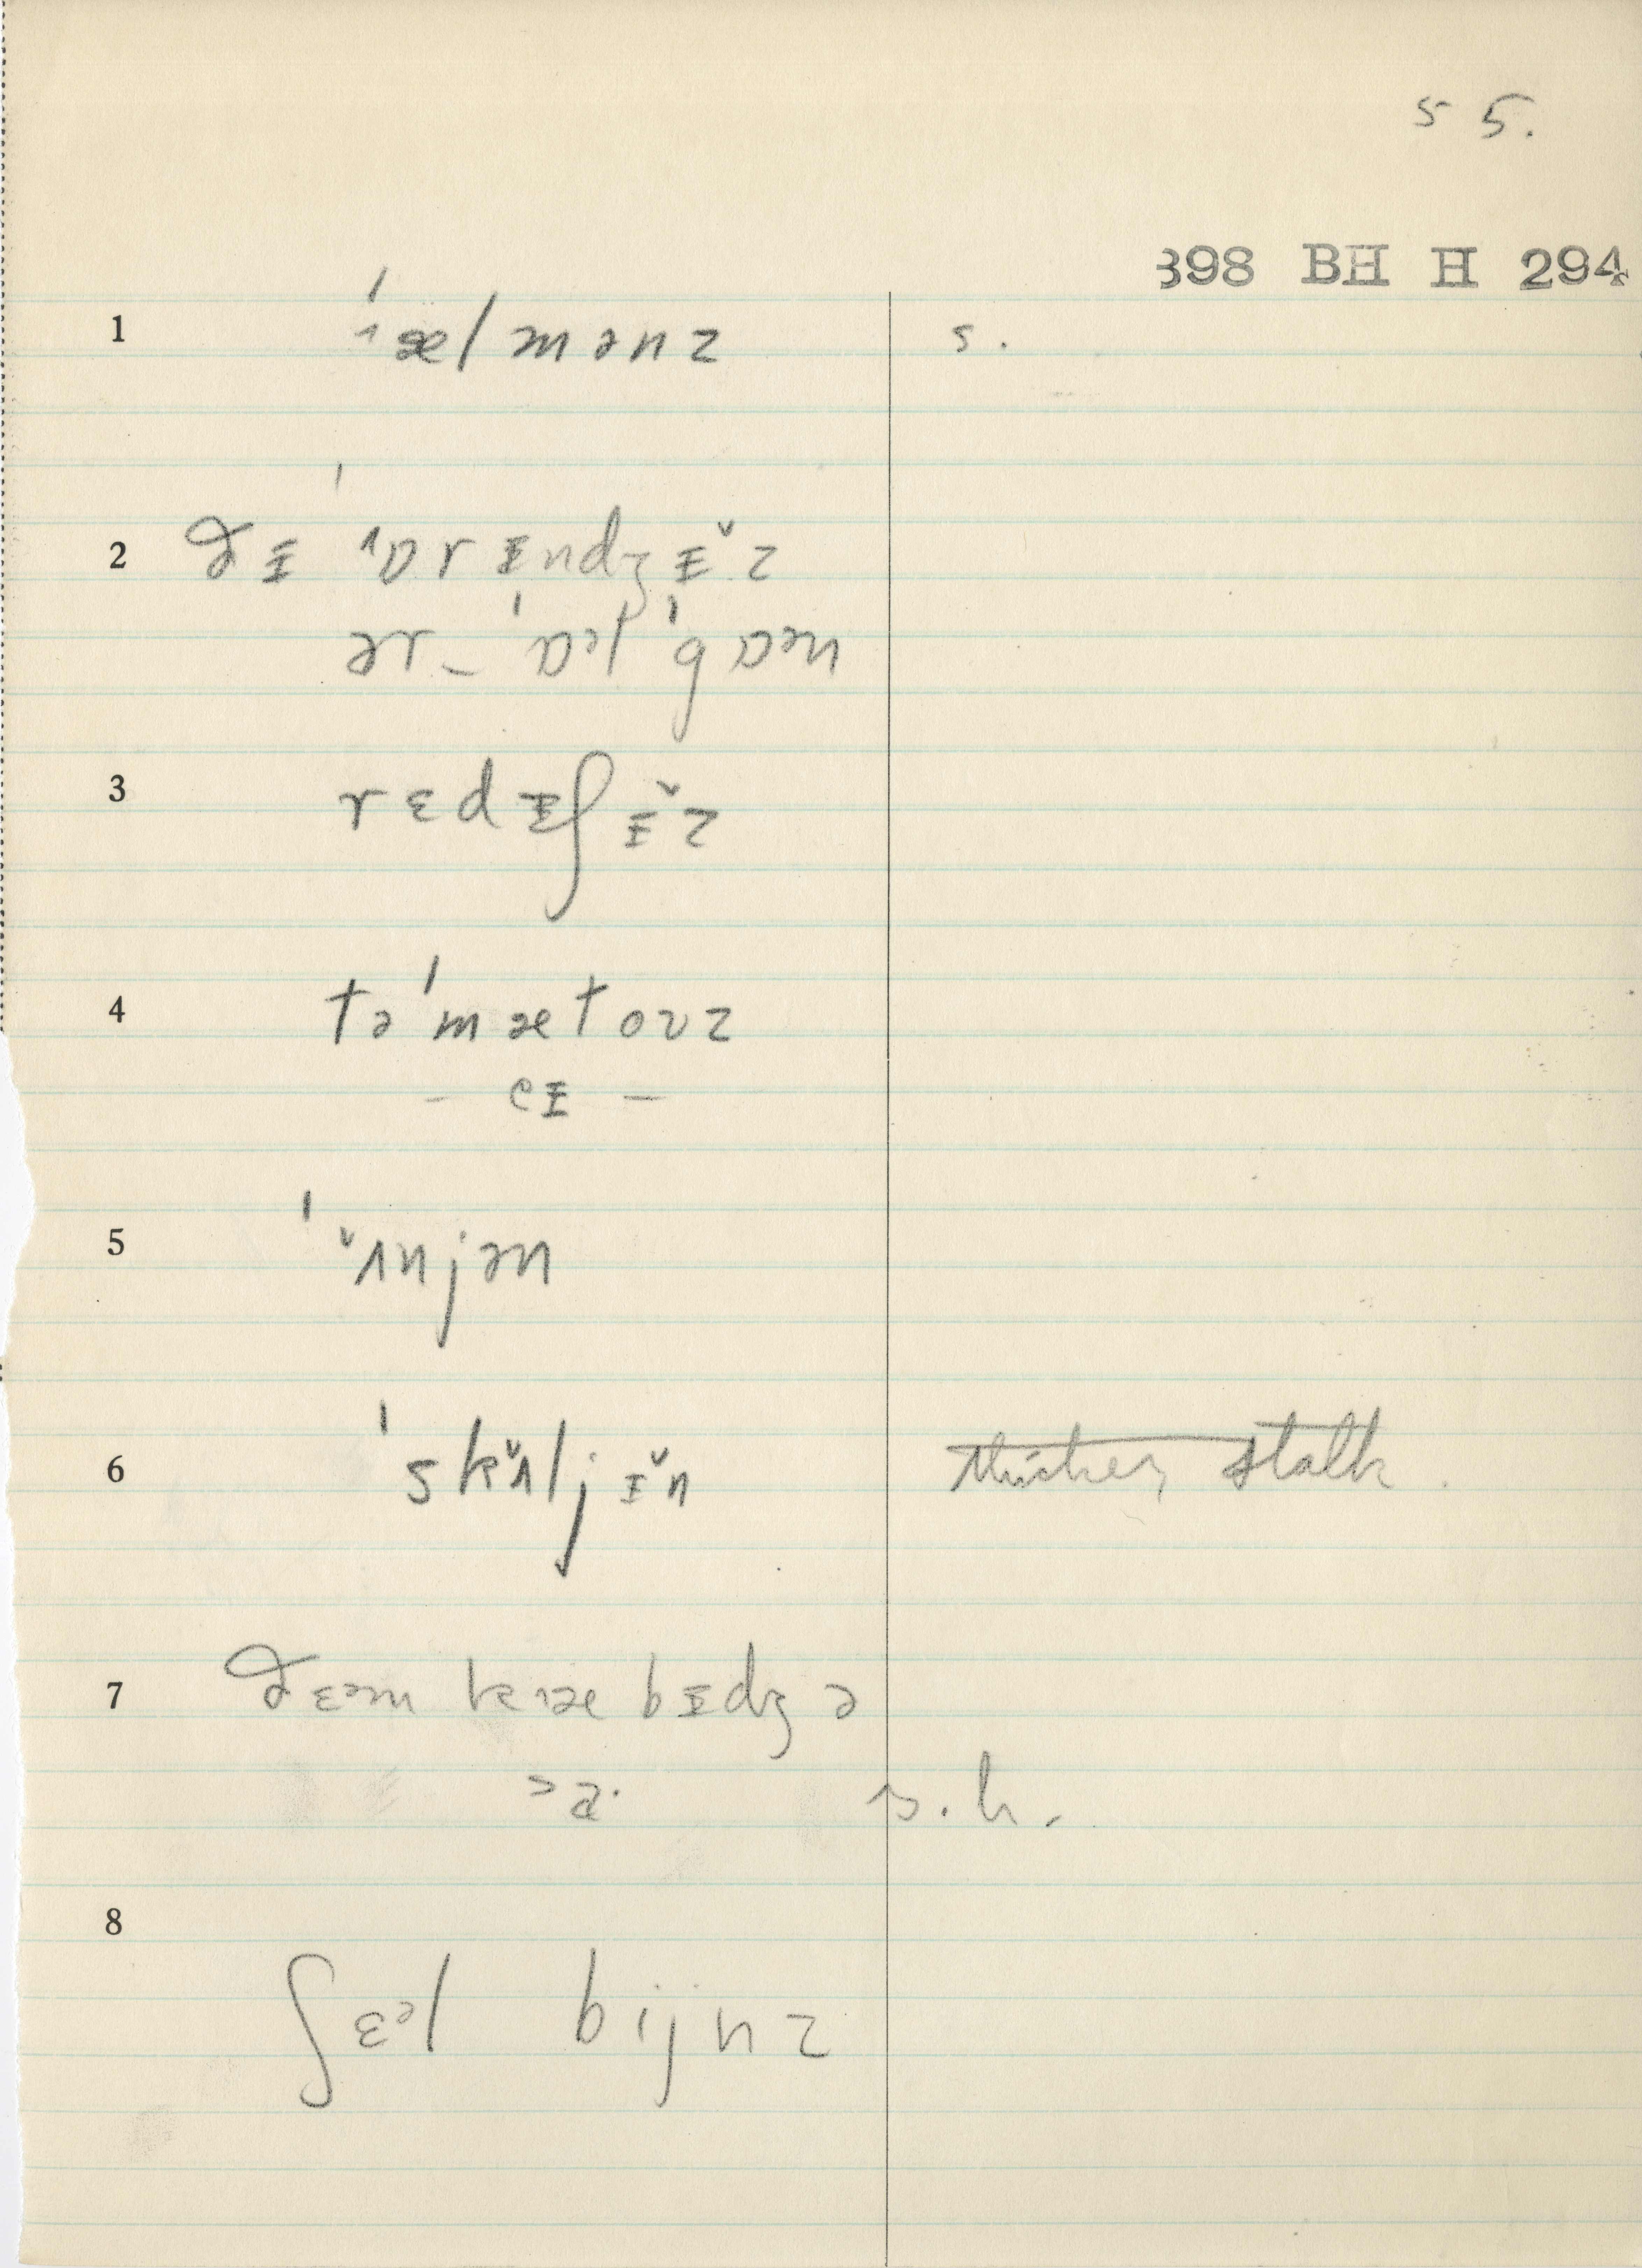 5 5.
398 BH H 294
1 ˈælmənz s.
2 ðɪ ˈɒrɪndʒɪ̌z
ər – ˈɒəl ˈgɒən
3 rɛdɪʃɪ̌z
4 təˈmætoʊz
– eɪ –
5 ˈʌ̌njən
6 ˈskʌ̌ljɪ̌n thicker stalk.
7 ðɛəm kæbɪdʒə
>a. s.h.
8 ʃɛəl bijnz